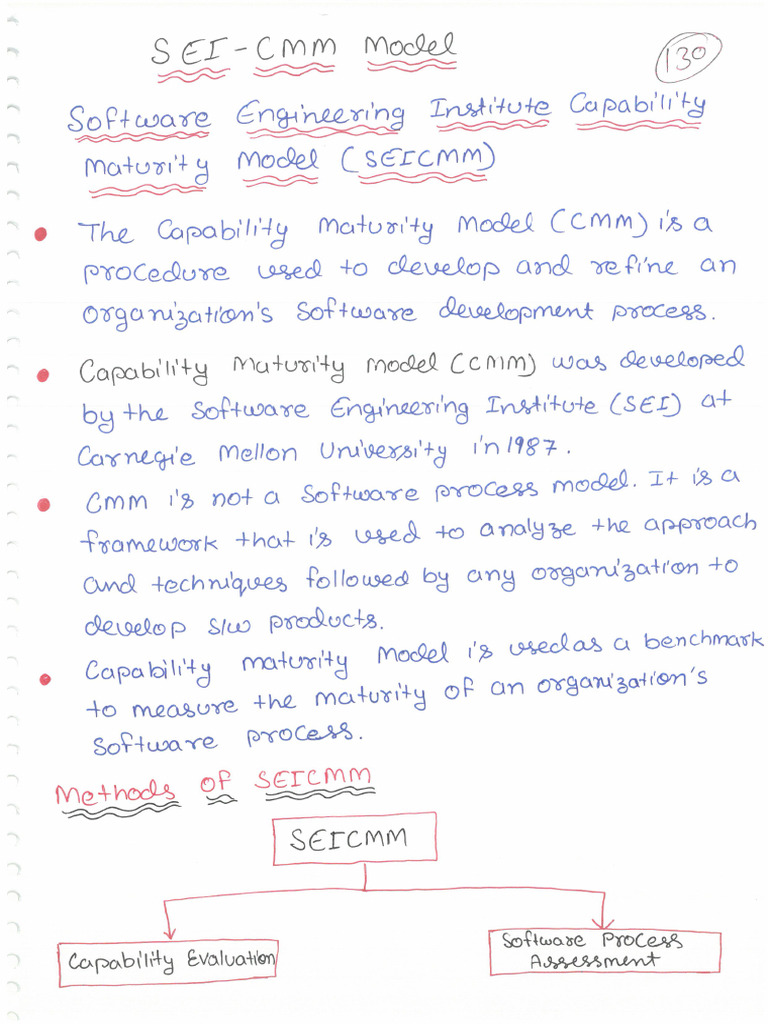 SEI-CMM Model
130
Software Engineering Institute Capability
Maturity Model (SEICMM)
The Capability Maturity Model (CMM) is a
procedure used to develop and refine an
organization's software development process.
Capability Maturity Model (CMM) was developed
by the Software Engineering Institute (SEI) at
Carnegie Mellon University in 1987.
CMM is not a software process model. It is a
framework that is used to analyze the approach
and techniques followed by any organization to
develop s/w products.
Capability maturity Model is used as a benchmark
to measure the maturity of an organization's
software process.
Methods of SEICMM
SEICMM
Capability Evaluation
Software Process
Assessment